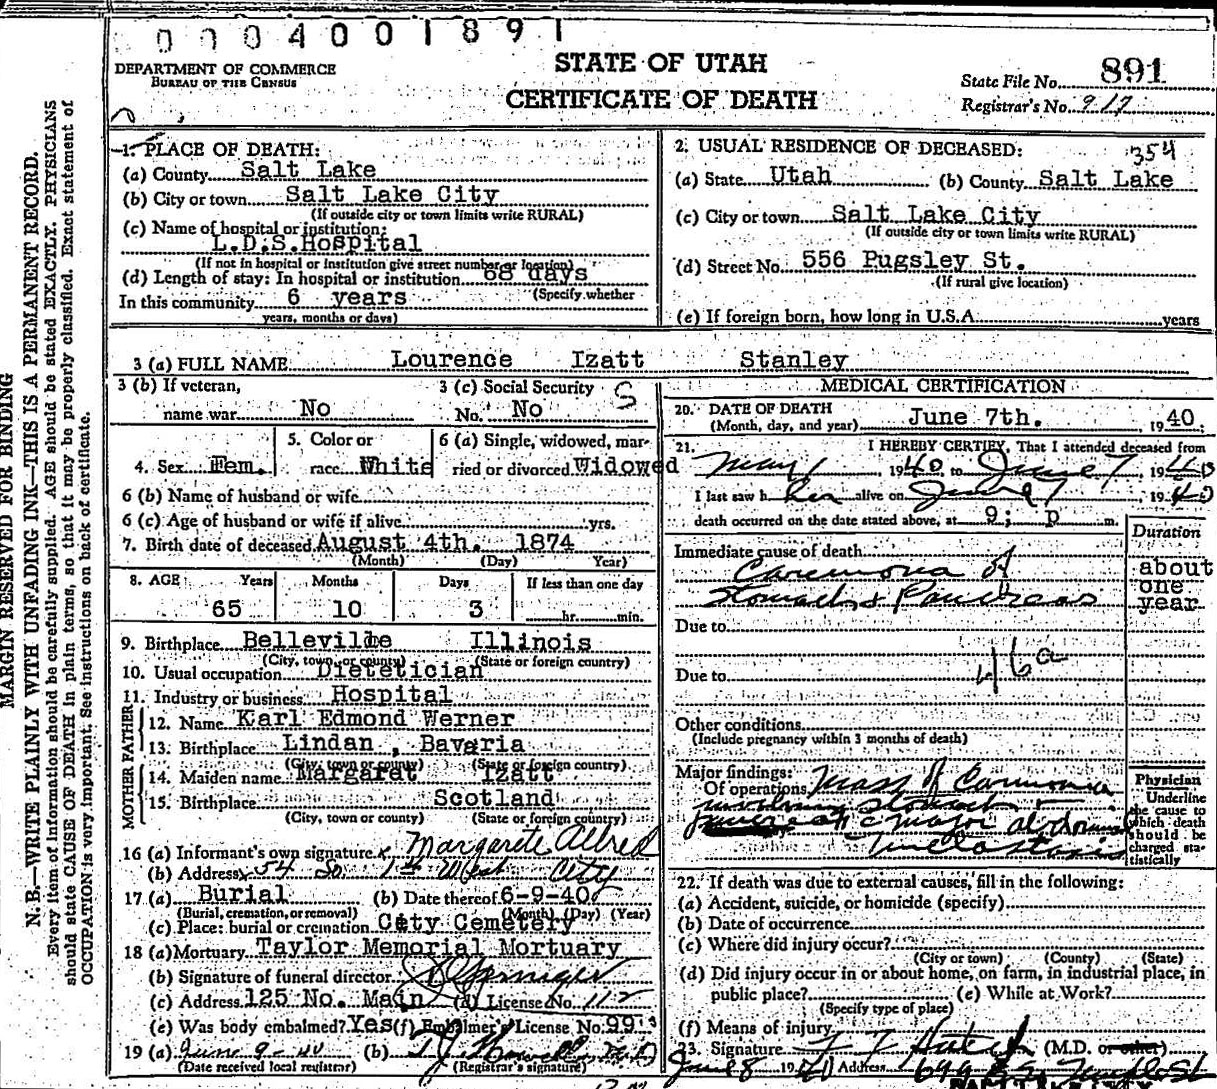 0004001891
DEPARTMENT OF COMMERCE
BUREAU OF THE CENSUS
STATE OF UTAH
CERTIFICATE OF DEATH
State File No. 891
Registrar's No. 917
MARGIN RESERVED FOR BINDING
N. B.—WRITE PLAINLY WITH UNFADING INK—THIS IS A PERMANENT RECORD.
Every item of information should be carefully supplied. AGE should be stated EXACTLY. PHYSICIANS
should state CAUSE OF DEATH in plain terms, so that it may be properly classified. Exact statement of
OCCUPATION is very important. See instructions on back of certificate.
1. PLACE OF DEATH:
(a) County Salt Lake
(b) City or town Salt Lake City
(If outside city or town limits write RURAL)
(c) Name of hospital or institution:
L.D.S.Hospital
(If not in hospital or institution give street number or location)
(d) Length of stay: In hospital or institution 68 days
(Specify whether
In this community 6 years
years, months or days)
2. USUAL RESIDENCE OF DECEASED: 354
(a) State Utah (b) County Salt Lake
(c) City or town Salt Lake City
(If outside city or town limits write RURAL)
(d) Street No. 556 Pugsley St.
(If rural give location)
(e) If foreign born, how long in U.S.A. years
3 (a) FULL NAME Lourence Izatt Stanley
3 (b) If veteran, name war No
3 (c) Social Security No. No S
4. Sex Fem.
5. Color or race White
6 (a) Single, widowed, married or divorced Widowed
6 (b) Name of husband or wife
6 (c) Age of husband or wife if alive yrs.
7. Birth date of deceased August 4th. 1874
(Month) (Day) Year)
8. AGE Years Months Days If less than one day
65 10 3 hr. min.
9. Birthplace Belleville Illinois
(City, town, or county) (State or foreign country)
10. Usual occupation Dietetician
11. Industry or business Hospital
FATHER
12. Name Karl Edmond Werner
13. Birthplace Lindan, Bavaria
(City, town or county) (State or foreign country)
MOTHER
14. Maiden name Margaret Izatt
15. Birthplace Scotland
(City, town or county) (State or foreign country)
16 (a) Informant's own signature x Margarete Allred
(b) Address 54 So 1st West City
17 (a) Burial (b) Date thereof 6-9-40
(Burial, cremation, or removal) (Month) (Day) (Year)
(c) Place: burial or cremation City Cemetery
18 (a) Mortuary Taylor Memorial Mortuary
(b) Signature of funeral director
(c) Address 125 No. Main (d) License No. 112
(e) Was body embalmed? Yes (f) Embalmer's License No. 99
19 (a) June 9-40 (b)
(Date received local registrar) (Registrar's signature)
MEDICAL CERTIFICATION
20. DATE OF DEATH
(Month, day, and year) June 7th. 1940.
21. I HEREBY CERTIFY, That I attended deceased from
May 1, 1940 to June 7 1940
I last saw her alive on June 7, 1940
death occurred on the date stated above, at 9; p m.
Duration
Immediate cause of death
Carcinoma of
Stomach & Pancreas
about one year
Due to
Due to 46a
Other conditions
(Include pregnancy within 3 months of death)
Major findings:
Of operations Mass of Carcinoma
involving stomach &
pancreas c major abdominal
metastasis
Physician
Underline the cause to which death should be charged statistically
22. If death was due to external causes, fill in the following:
(a) Accident, suicide, or homicide (specify)
(b) Date of occurrence
(c) Where did injury occur?
(City or town) (County) (State)
(d) Did injury occur in or about home, on farm, in industrial place, in
public place? (e) While at Work?
(Specify type of place)
(f) Means of injury
23. Signature F F Hatch (M.D. or other)
June 8 1940 Address 699 E So Temple St